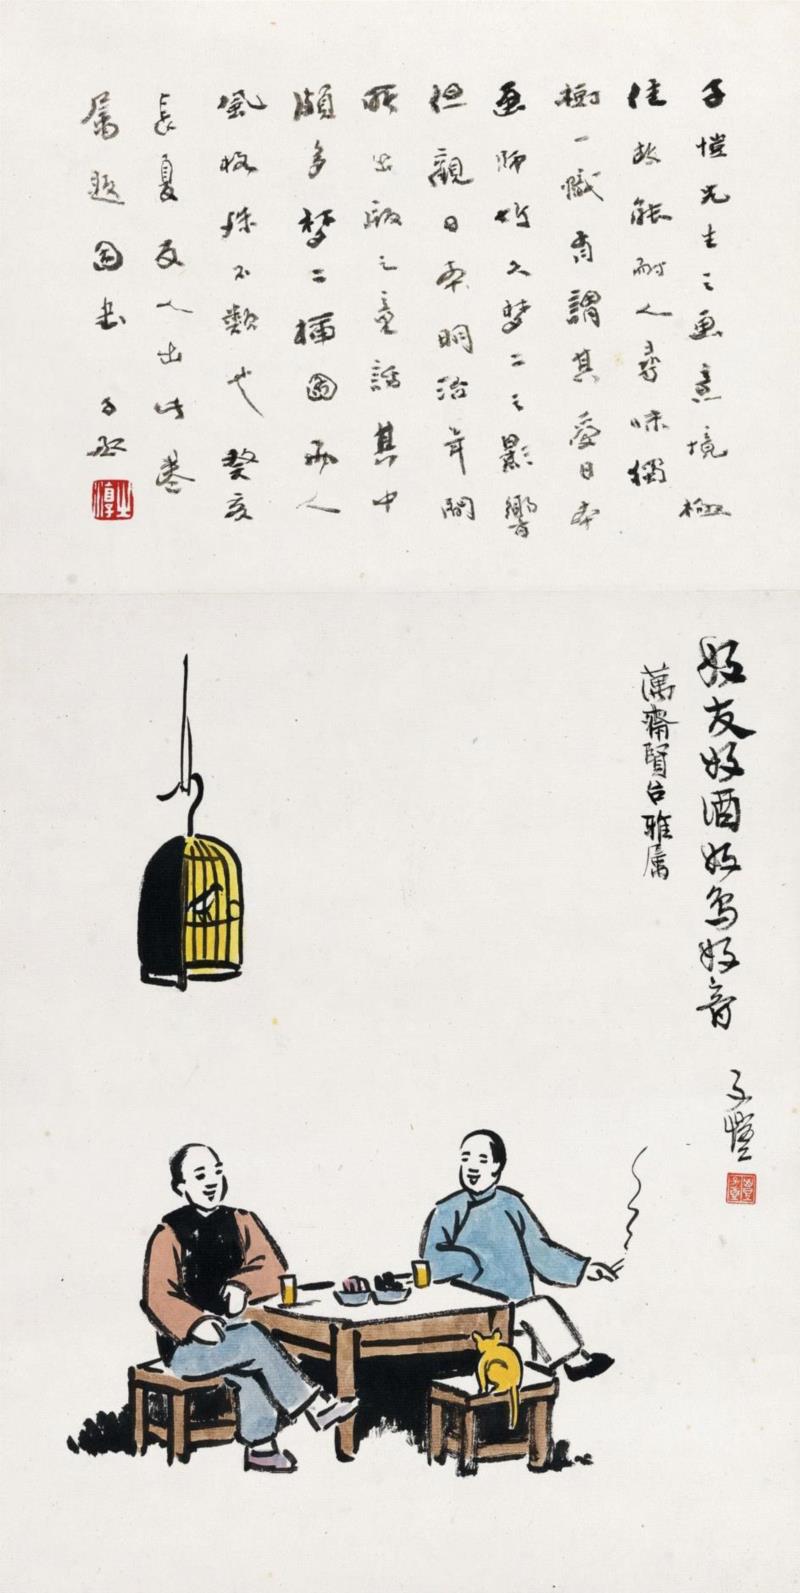 子愷先生之画意境極
佳故能耐人尋味獨
樹一幟有謂其受日本
画師竹久梦二之影響
但觀日本明治年間
所出版之童話其中
頗多梦二插图两人
風格殊不類也癸亥
長夏友人出此卷
属题因书 子丞
之淳
好友好酒好鸟好音
萬齋賢台雅属
子愷